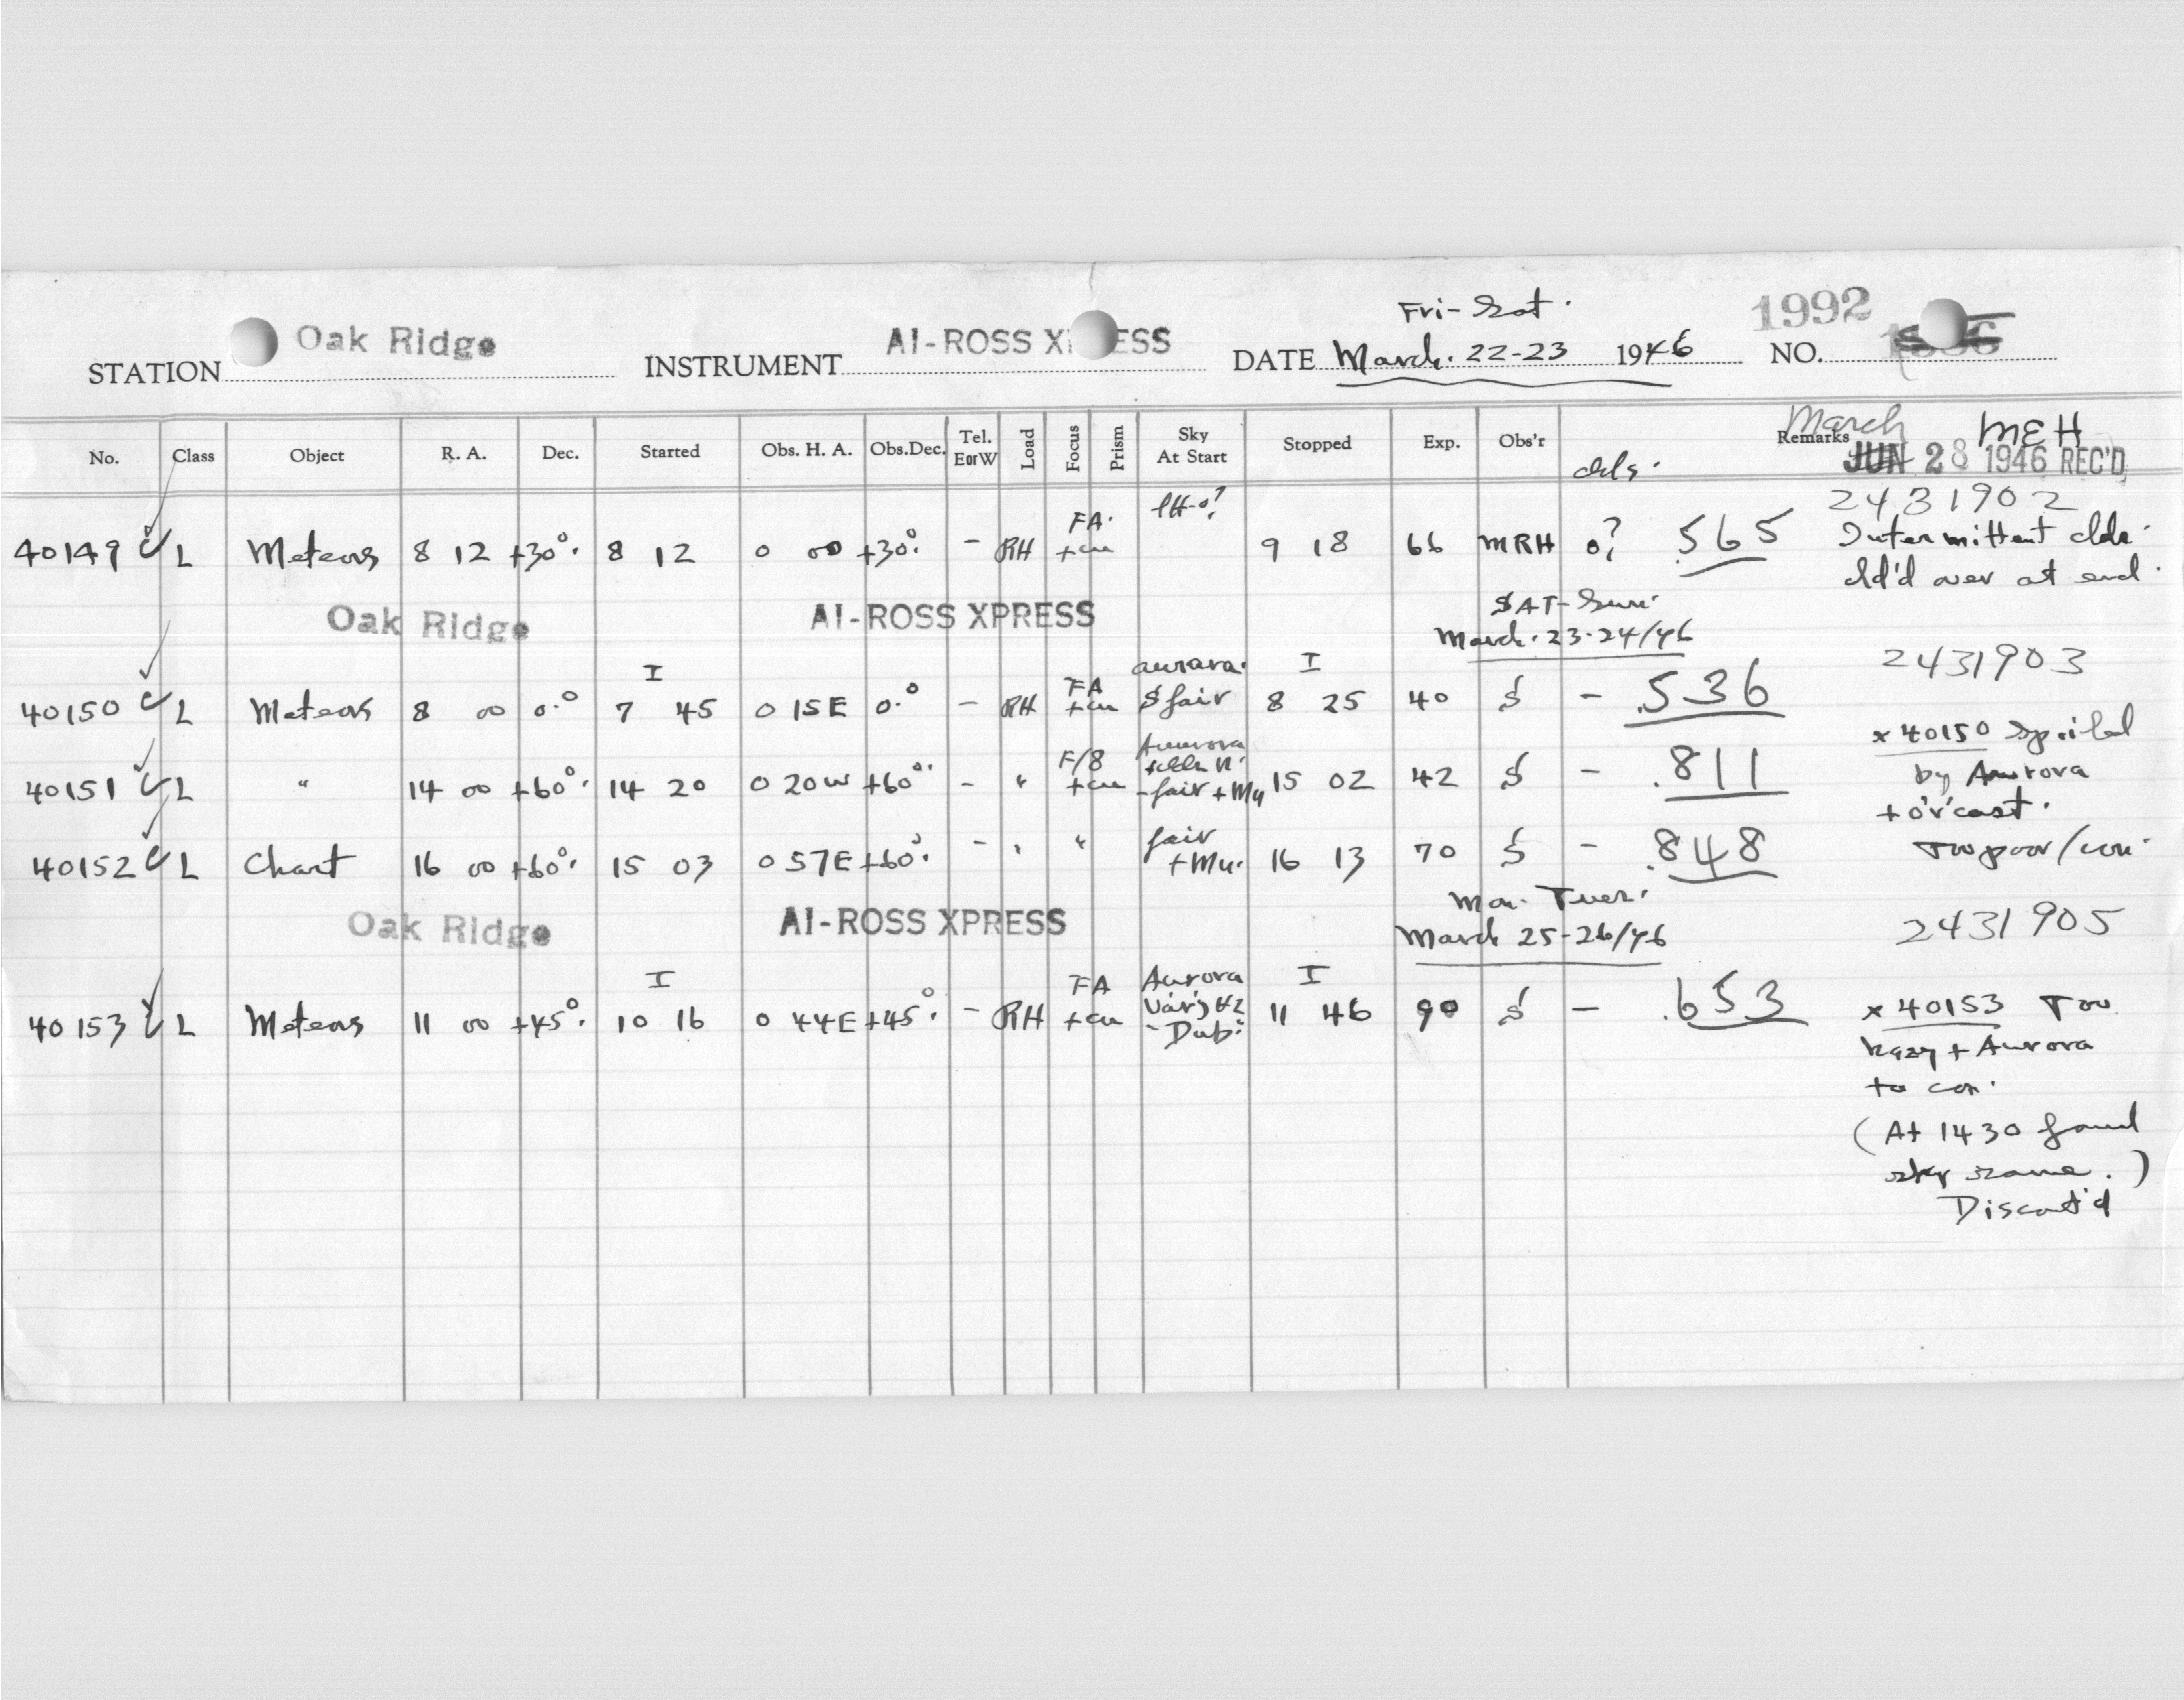 Fri-Sat.
STATION Oak Ridge INSTRUMENT AI-ROSS XPRESS DATE March. 22-23 1946 NO. 1992
No. Class Object R. A. Dec. Started Obs. H. A. Obs.Dec. Tel. EorW Load Focus Prism Sky At Start Stopped Exp. Obs'r clds. Remarks March MEH
JUN 28 1946 REC'D
2431902
40149 L Meteors 8 12 +30°. 8 12 0 00 +30°. - RH FA. +cu 9 18 66 MRH 0? .565 Intermittent clds.
cld'd over at end.
Oak Ridge AI-ROSS XPRESS SAT-Sun.
March. 23-24/46
2431903
40150 L Meteors 8 00 0.° I 7 45 0 15E 0.° - RH FA +cu aurora. fair I 8 25 40 S - .536 x 40150 Spoiled
40151 L " 14 00 +60°. 14 20 0 20W +60°. - " F/8 +cu Aurora -fair + Mu 15 02 42 S - .811 by Aurora
+ o'v'cast.
40152 L Chart 16 00 +60°. 15 03 0 57E +60°. - " " fair +Mu. 16 13 70 S - .848 Too poor/con.
Oak Ridge AI-ROSS XPRESS Mon. Tues.
March 25-26/46
2431905
40153 L Meteors 11 00 +45°. I 10 16 0 44E +45°. - RH FA +cu Aurora Var'g Hz - Dub: I 11 46 90 S - .653 x 40153 Too
hazy + Aurora
to con.
(At 1430 found
sky same.)
Discont'd